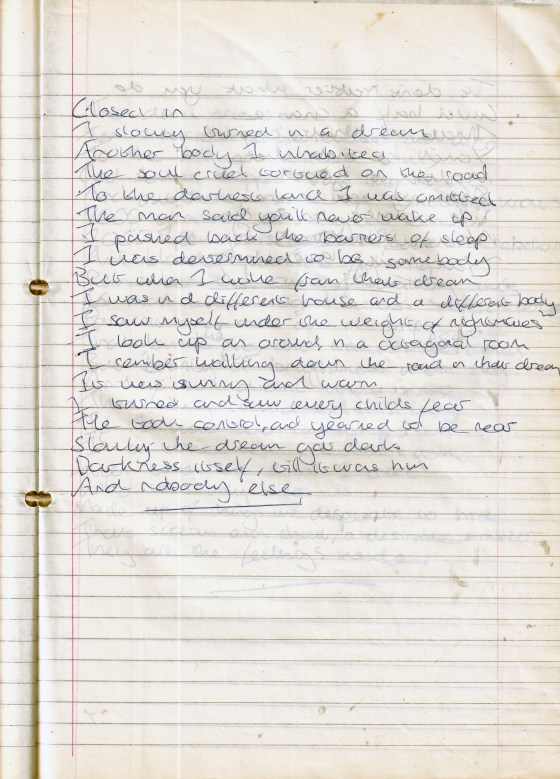 Closed in
I slowly turned in a dream
Another body I inhabited
The soul cruel tortured on the road
To the darkness land I was omitted
The man said you'll never wake up
I pushed back the barriers of sleep
I was determined to be somebody
But when I woke from that dream
I was in a different house and a different body
I saw myself under the weight of nightmares
I look up an around in a octagonal room
I rember walking down the road in that dream
It was sunny and warm
I turned and saw every childs fear
He took control, and yearned to be near
Slowly the dream got dark
Darkness itself, till it was him
And nobody else